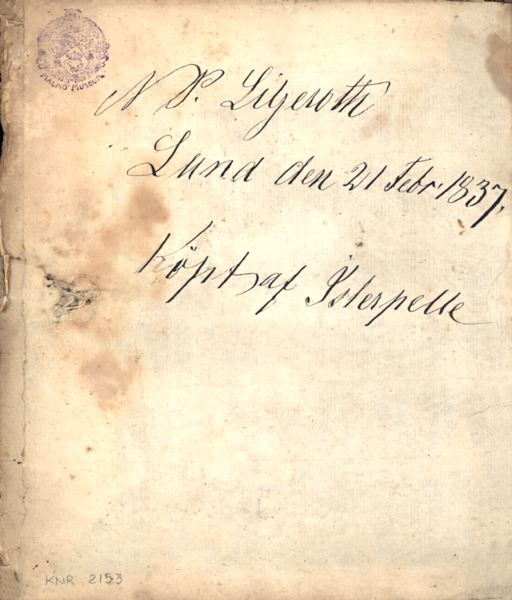 MALMÖ MUSEUM
N P. Ligeroth
Lund den 21 Febr. 1837.
Köpt af Isterpelle
KNR 2153